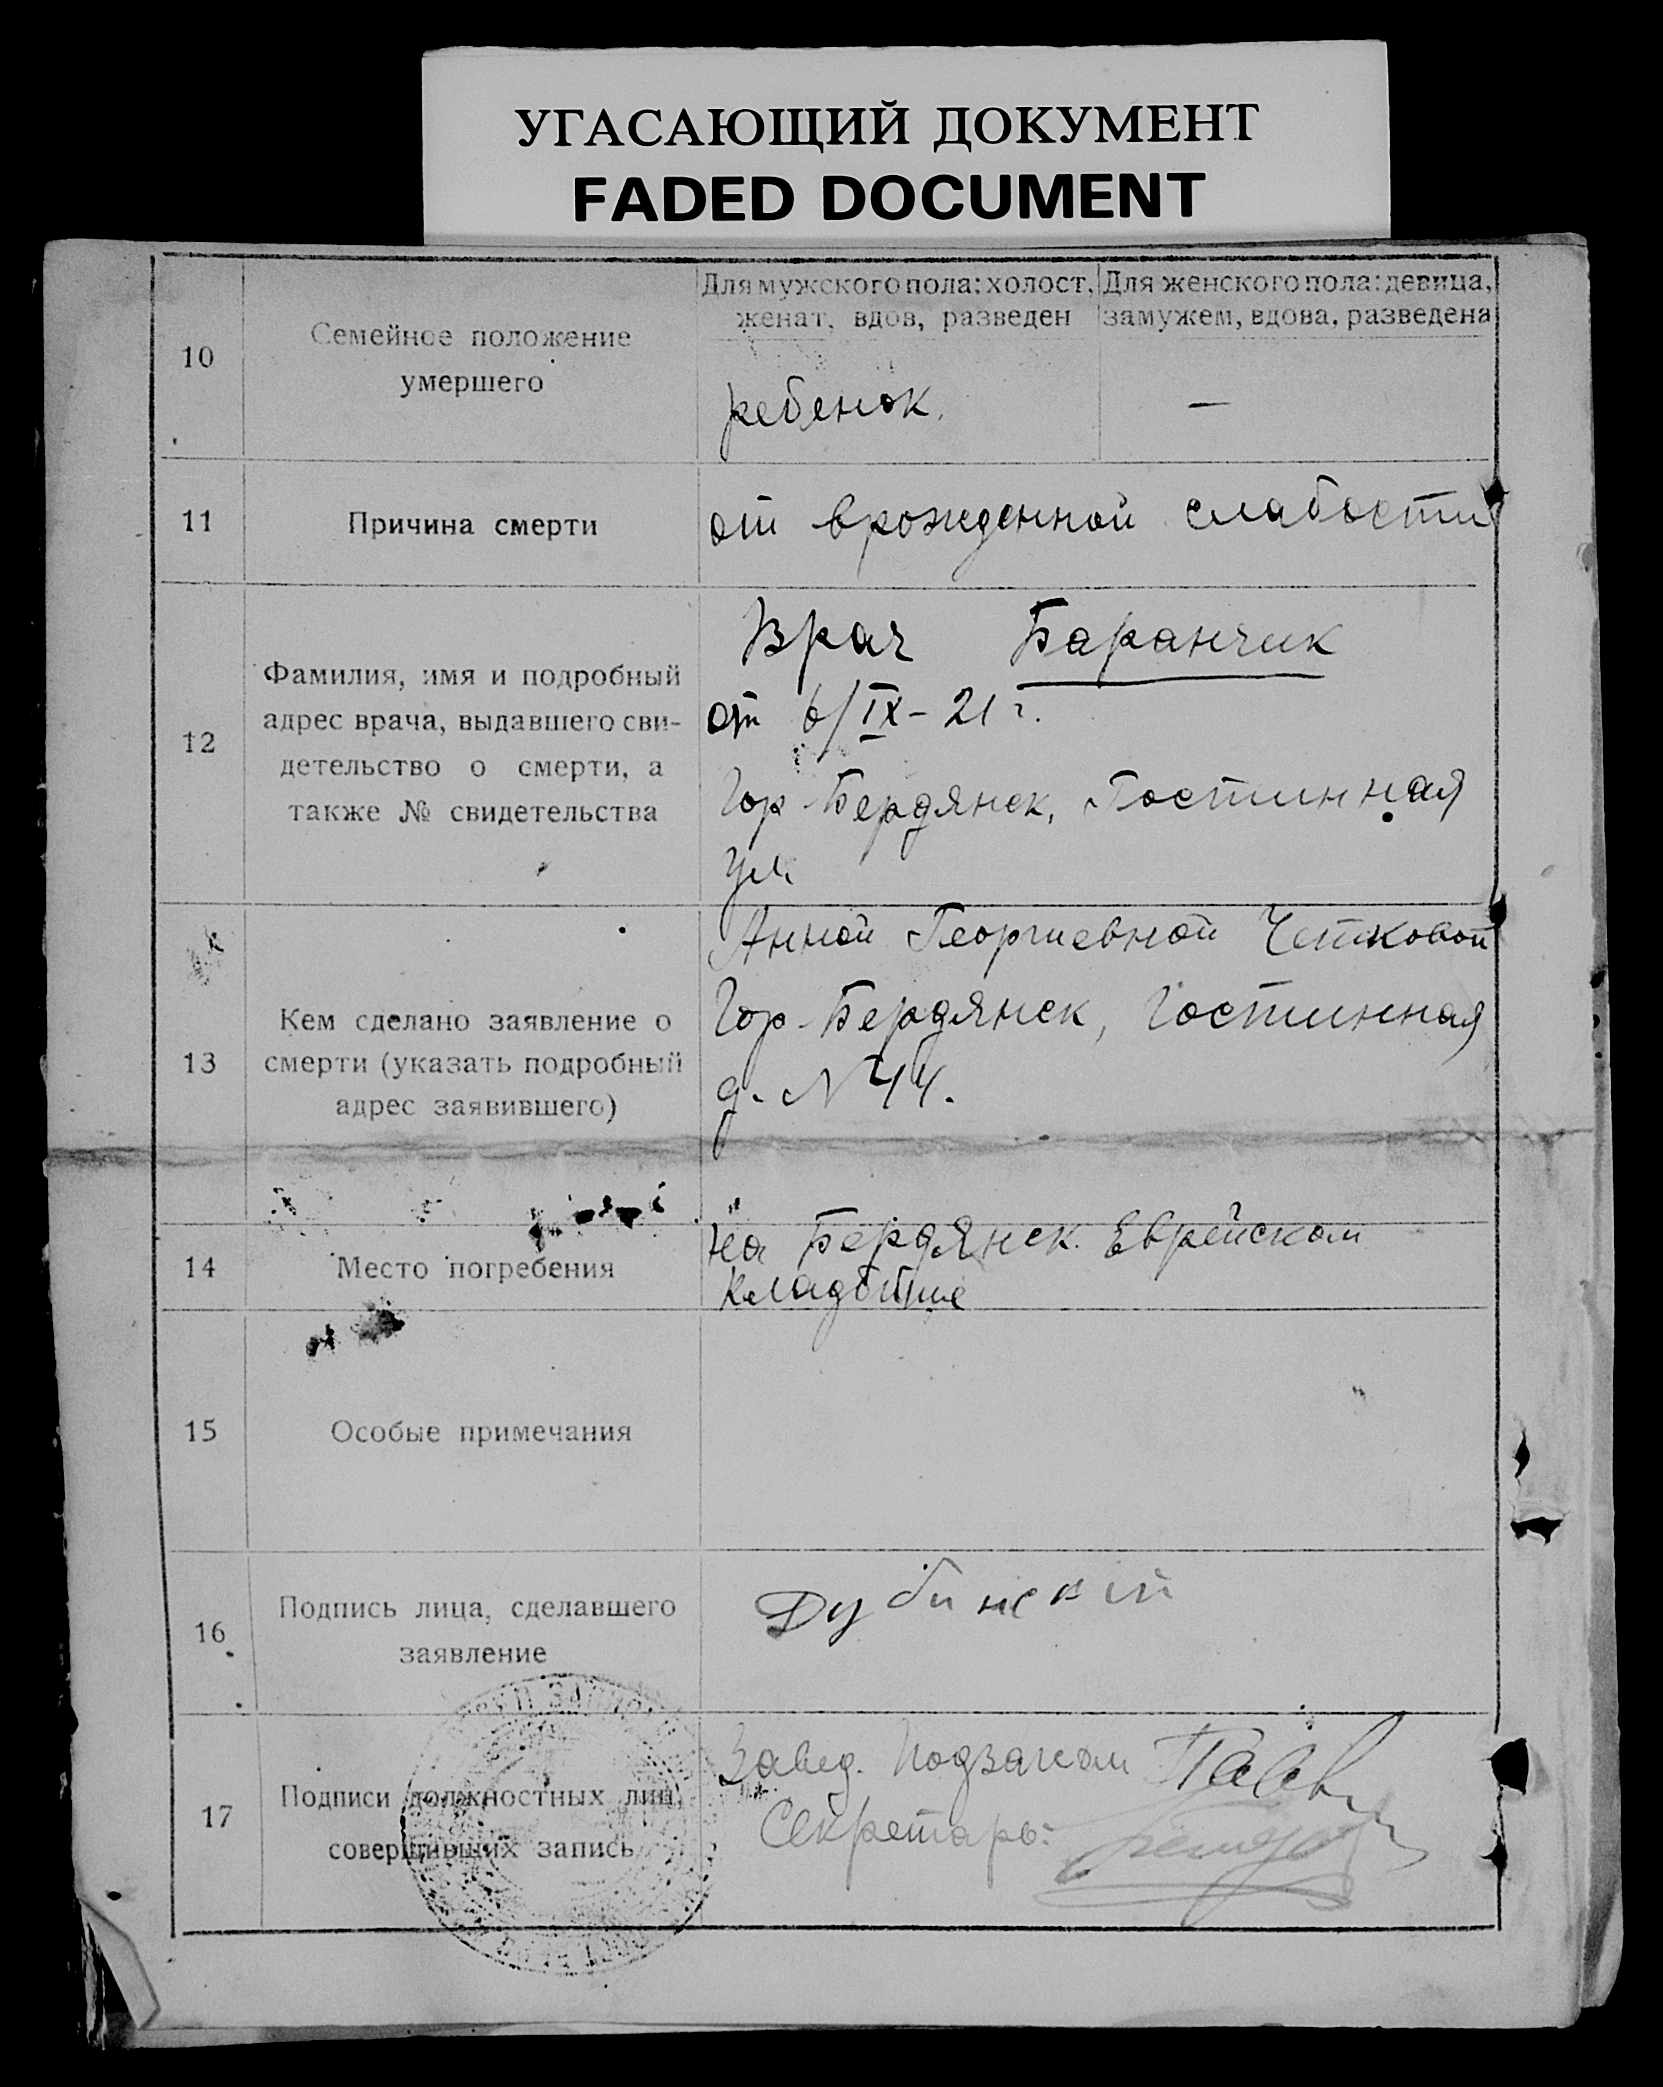 УГАСАЮЩИЙ ДОКУМЕНТ
FADED DOCUMENT
10
Семейное положение
умершего
Для мужского пола: холост,
женат, вдов, разведен
Для женского пола: девица,
замужем, вдова, разведена
ребенок.
—
11
Причина смерти
от врожденной слабости
12
Фамилия, имя и подробный
адрес врача, выдавшего сви-
детельство о смерти, а
также № свидетельства
Врач Баранчик
от 6/IX - 21 г.
Гор. Бердянск, Гостинная
ул.
13
Кем сделано заявление о
смерти (указать подробный
адрес заявившего)
Анной Георгиевной
Гор. Бердянск, Гостинная
д. N 44.
14
Место погребения
на Бердянск. Еврейском
кладбище
15
Особые примечания
16
Подпись лица, сделавшего
заявление
Дубинский
17
Подписи должностных лиц,
совершивших запись
Завед. Подзагсом
Секретарь: